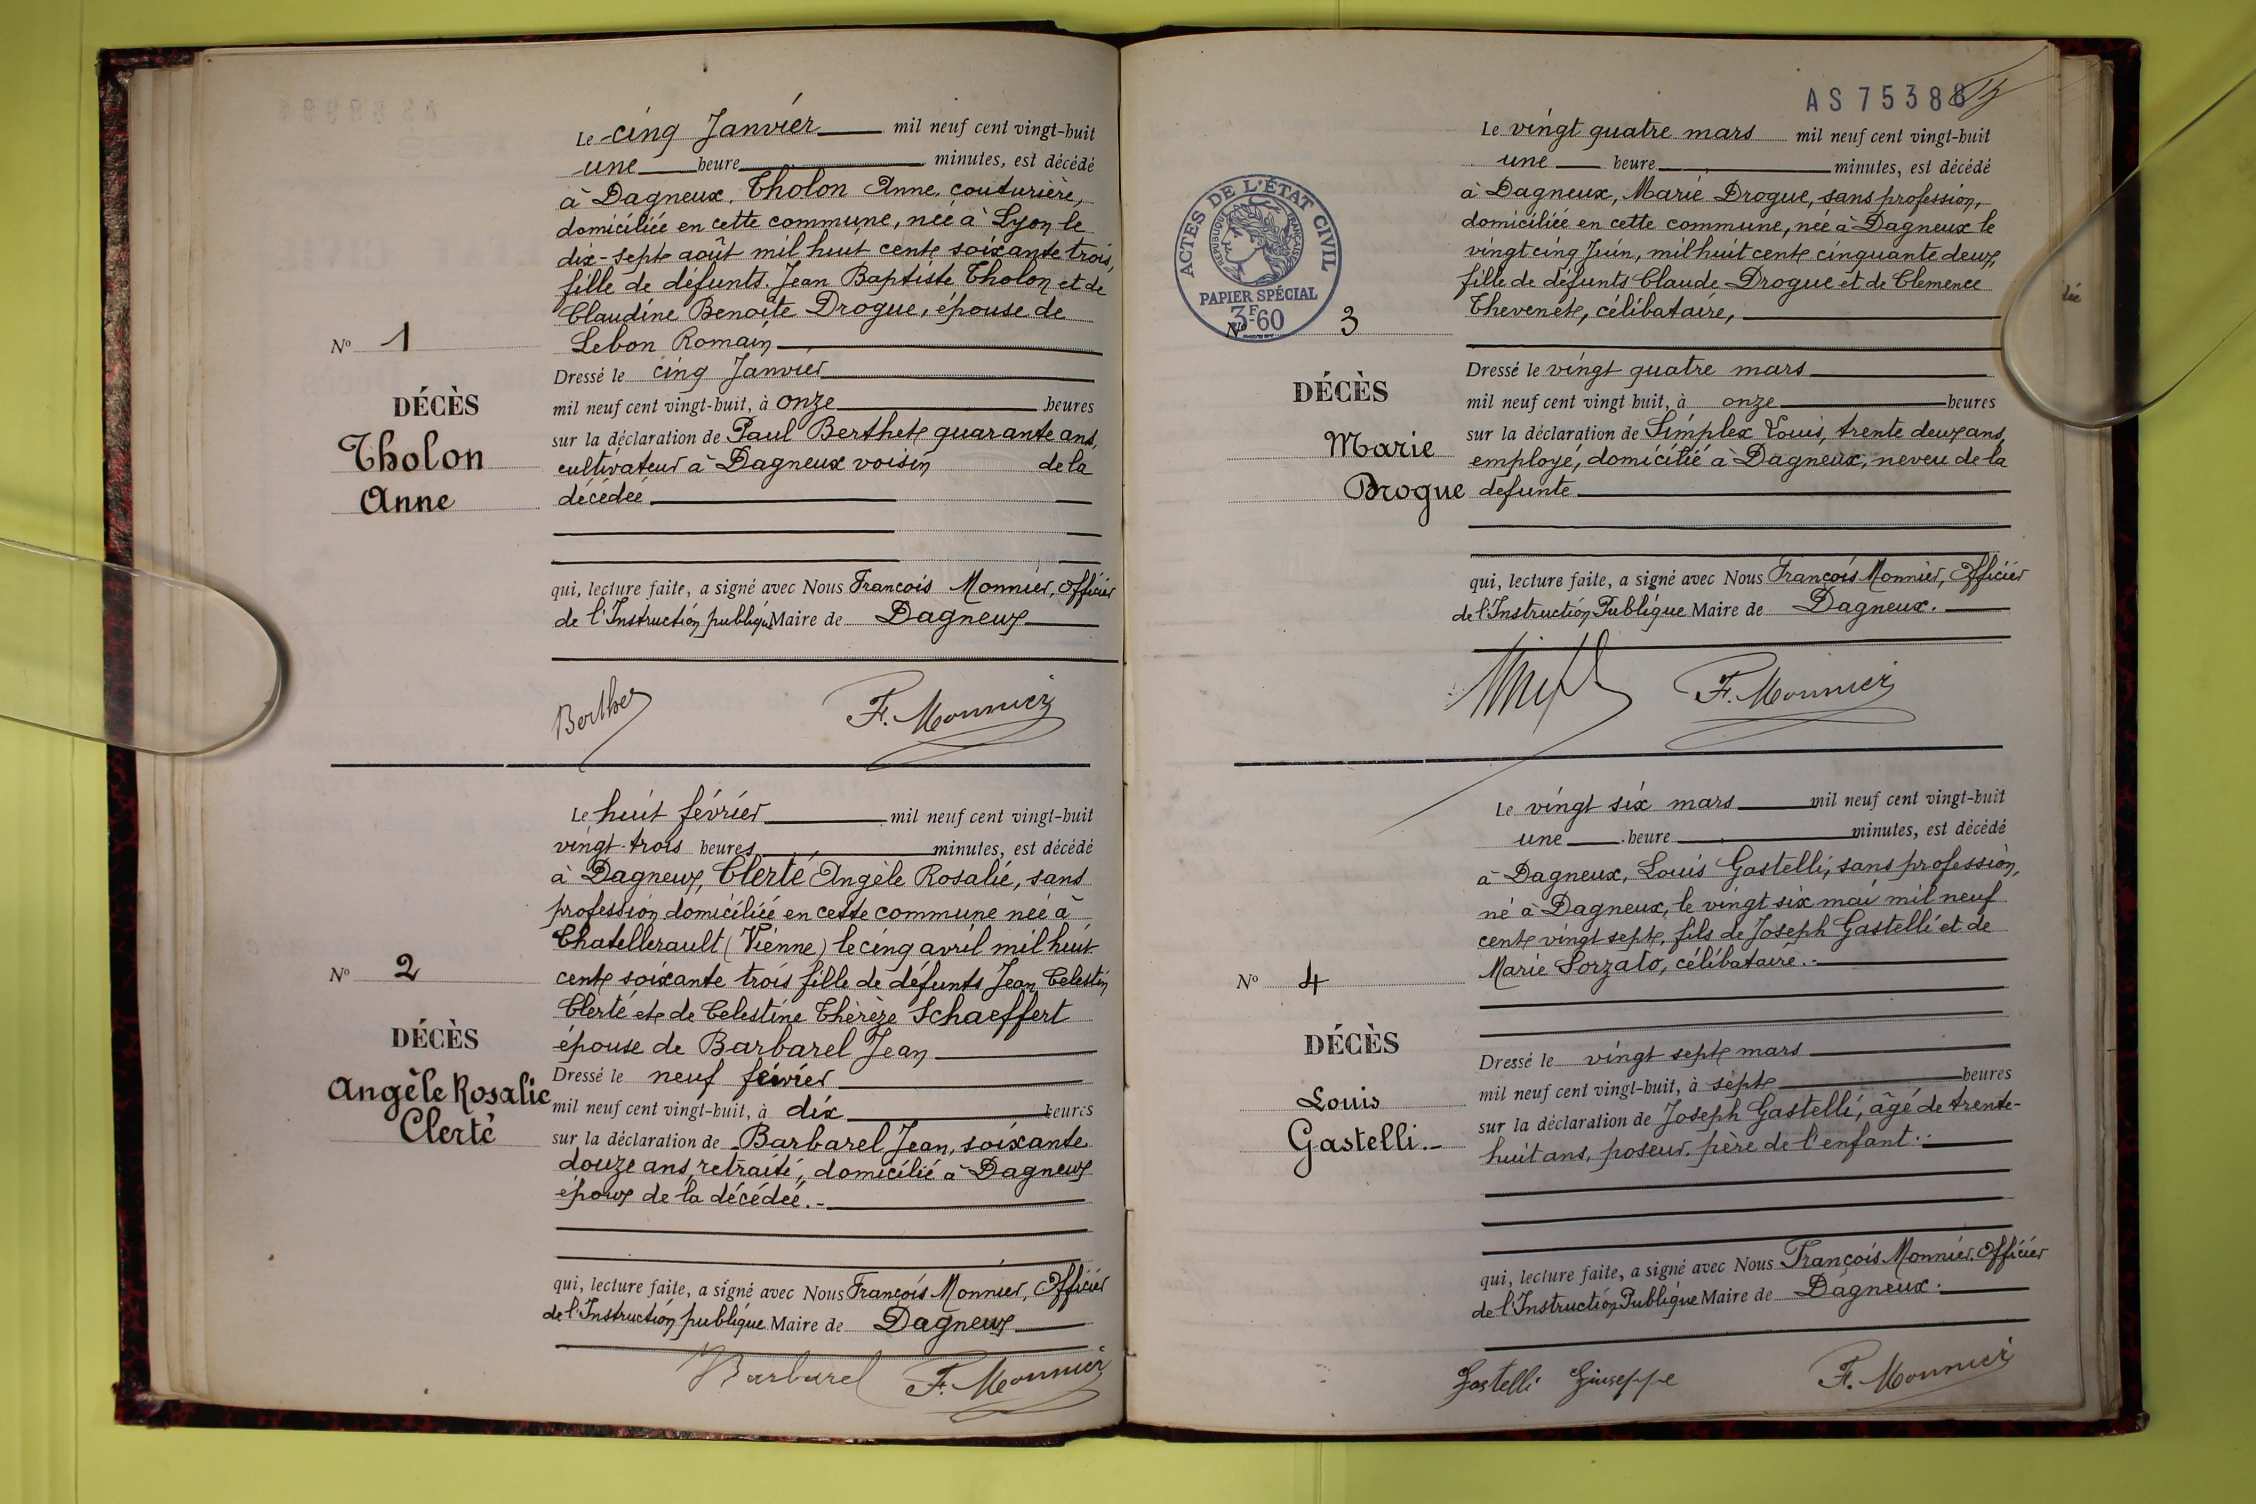 Le cinq Janvier mil neuf cent vingt-huit
une heure minutes, est décédé
à Dagneux, Tholon Anne, couturière,
domiciliée en cette commune, née à Lyon le
dix-sept août mil huit cent soixante trois,
fille de défunts Jean Baptiste Tholon et de
Claudine Benoite Drogue, épouse de
Lebon Romain
Nº 1
DÉCÈS
Tholon
Anne
Dressé le cinq Janvier
mil neuf cent vingt-huit, à onze heures
sur la déclaration de Paul Berthet quarante ans,
cultivateur à Dagneux voisin de la
décédée
qui, lecture faite, a signé avec Nous François Monnier, Officier
de l'Instruction publique Maire de Dagneux
Berthet
F. Monnier
Le huit février mil neuf cent vingt-huit
vingt-trois heures minutes, est décédé
à Dagneux, Clerté Angèle Rosalie, sans
profession domiciliée en cette commune née à
Chatellerault (Vienne) le cinq avril mil huit
cent soixante trois fille de défunts Jean Celestin
Clerté et de Celestine Thérèze Schaeffert
épouse de Barbarel Jean
Nº 2
DÉCÈS
Angèle Rosalie
Clerté
Dressé le neuf février
mil neuf cent vingt-huit, à dix heures
sur la déclaration de Barbarel Jean, soixante
douze ans, retraité, domicilié à Dagneux
époux de la décédée.-
qui, lecture faite, a signé avec Nous François Monnier, Officier
de l'Instruction publique Maire de Dagneux
Barbarel F. Monnier
AS 75388
ACTES DE L'ÉTAT CIVIL
RÉPUBLIQUE FRANÇAISE
PAPIER SPÉCIAL
3F60
Le vingt quatre mars mil neuf cent vingt-huit
une heure minutes, est décédé
à Dagneux, Marie Drogue, sans profession,
domiciliée en cette commune, née à Dagneux le
vingt cinq Juin, mil huit cent cinquante deux,
fille de défunts Claude Drogue et de Clemence
Thevenet, célibataire,
Nº 3
DÉCÈS
Marie
Drogue
Dressé le vingt quatre mars
mil neuf cent vingt huit, à onze heures
sur la déclaration de Simplex Louis, trente deux ans,
employé, domicilié à Dagneux, neveu de la
defunte
qui, lecture faite, a signé avec Nous François Monnier, Officier
de l'Instruction Publique Maire de Dagneux.
F. Monnier
Le vingt six mars mil neuf cent vingt-huit
une heure minutes, est décédé
à Dagneux, Louis Gastelli, sans profession,
né à Dagneux, le vingt six mai mil neuf
cent vingt sept, fils de Joseph Gastelli et de
Marie Sorzato, célibataire.-
Nº 4
DÉCÈS
Louis
Gastelli.-
Dressé le vingt sept mars
mil neuf cent vingt-huit, à sept heures
sur la déclaration de Joseph Gastelli, âgé de trente-
huit ans, poseur, père de l'enfant.-
qui, lecture faite, a signé avec Nous François Monnier, Officier
de l'Instruction Publique Maire de Dagneux.
Gastelli Giuseppe F. Monnier